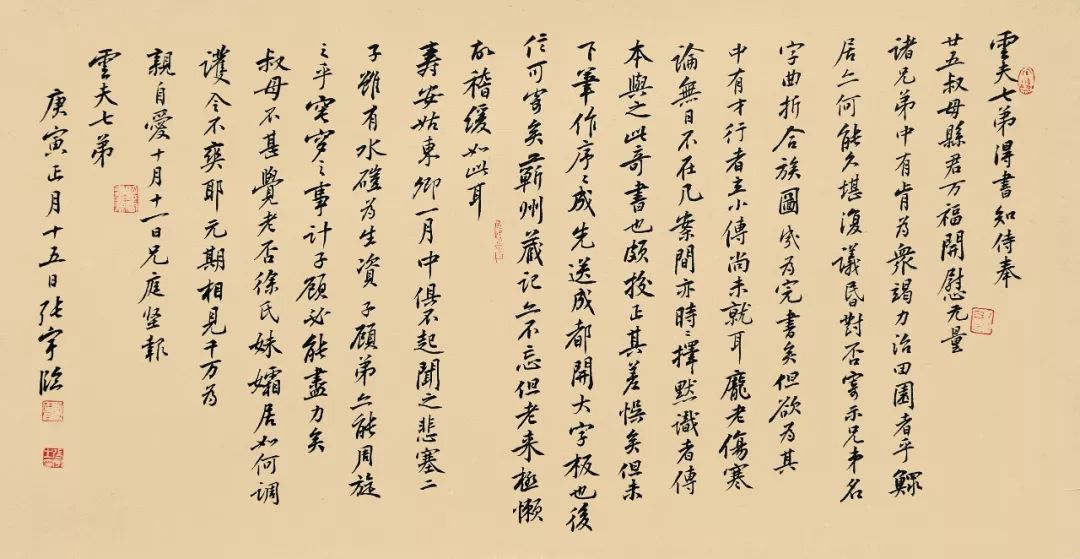 雲夫七弟得書知侍奉
廿五叔母縣君万福開慰无量
諸兄弟中有肯為衆竭力治田園者乎鰥
居亦何能久堪復議昏對否寄示兄弟名
字曲折合族圖成為完書矣但欲為其
中有才行者立小傳尚未就耳龐老傷寒
論無日不在几案間亦時時擇默識者傳
本與之此奇書也頗挍正其差悞矣但未
下筆作序序成先送成都開大字板也後
信可寄矣蘄州藏記亦不忘但老来極懶
故稽緩如此耳
壽安姑東卿一月中俱不起聞之悲塞二
子雖有水磑為生資子顧弟亦能周旋
之乎窀穸之事計子顧必能盡力矣
叔母不甚覺老否徐氏妹孀居如何調
護令不爽耶元期相見千万為
親自愛十月十一日兄庭堅報
雲夫七弟
庚寅正月十五日張宇臨